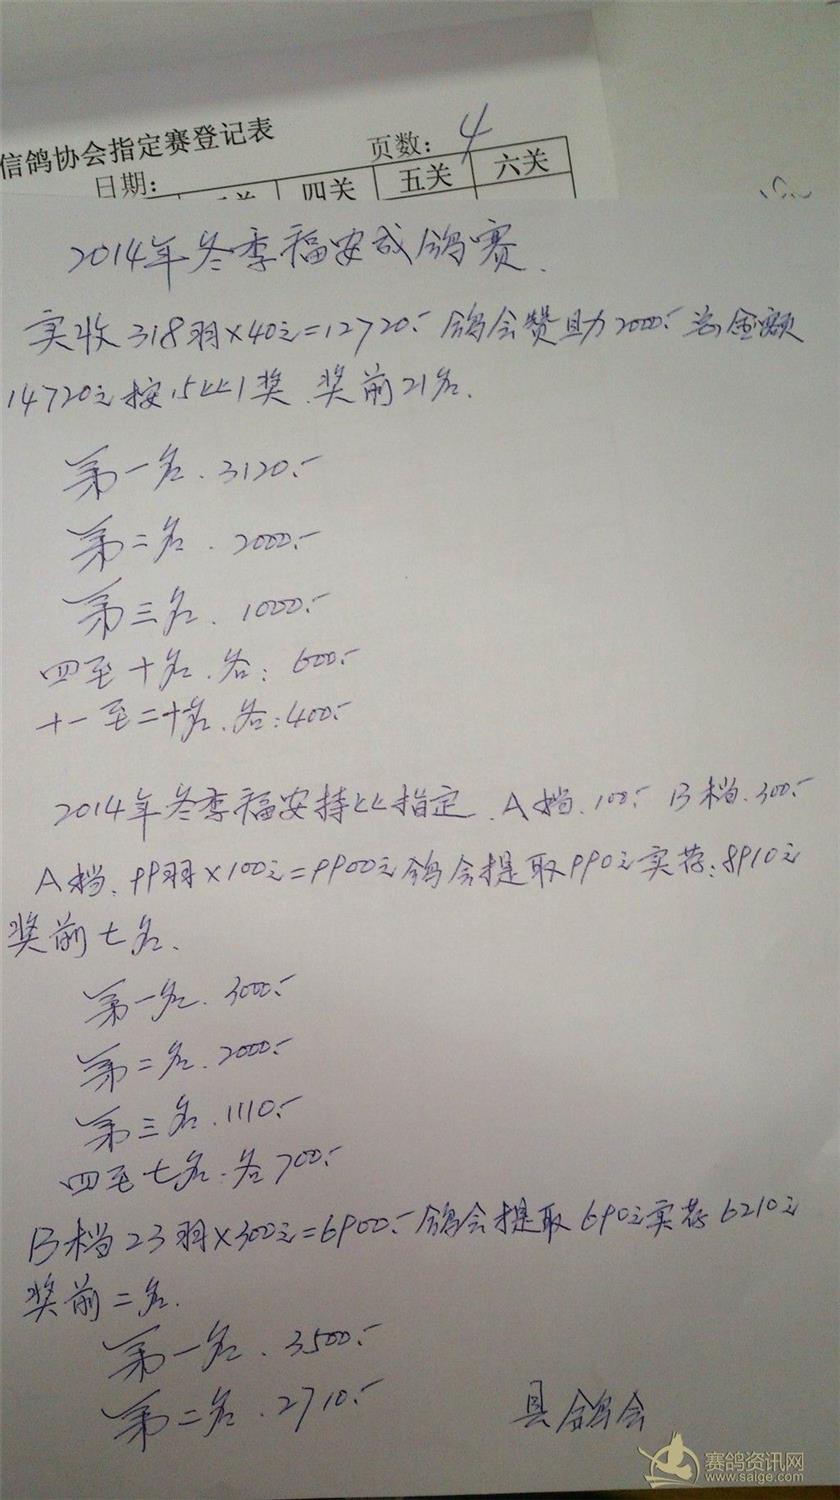 信鸽协会指定赛登记表
日期:
页数: 4
四关 五关 六关
2014年冬季福安成鸽赛.
实收318羽×40元=12720.- 鸽会赞助2000.- 总金额
14720元按15比1奖.奖前21名.
第一名.3120.-
第二名.2000.-
第三名.1000.-
四至十名.各:600.-
十一至二十名.各:400.-
2014年冬季福安持比指定.A档.100.- B档.300.-
A档.99羽×100元=9900元鸽会提取990元实存:8910元
奖前七名.
第一名.3000.-
第二名.2000.-
第三名.1110.-
四至七名.各700.-
B档23羽×300元=6900.-鸽会提取690元实存6210元
奖前二名.
第一名.3500.-
第二名.2710.-
县鸽会
赛鸽资讯网
www.saige.com